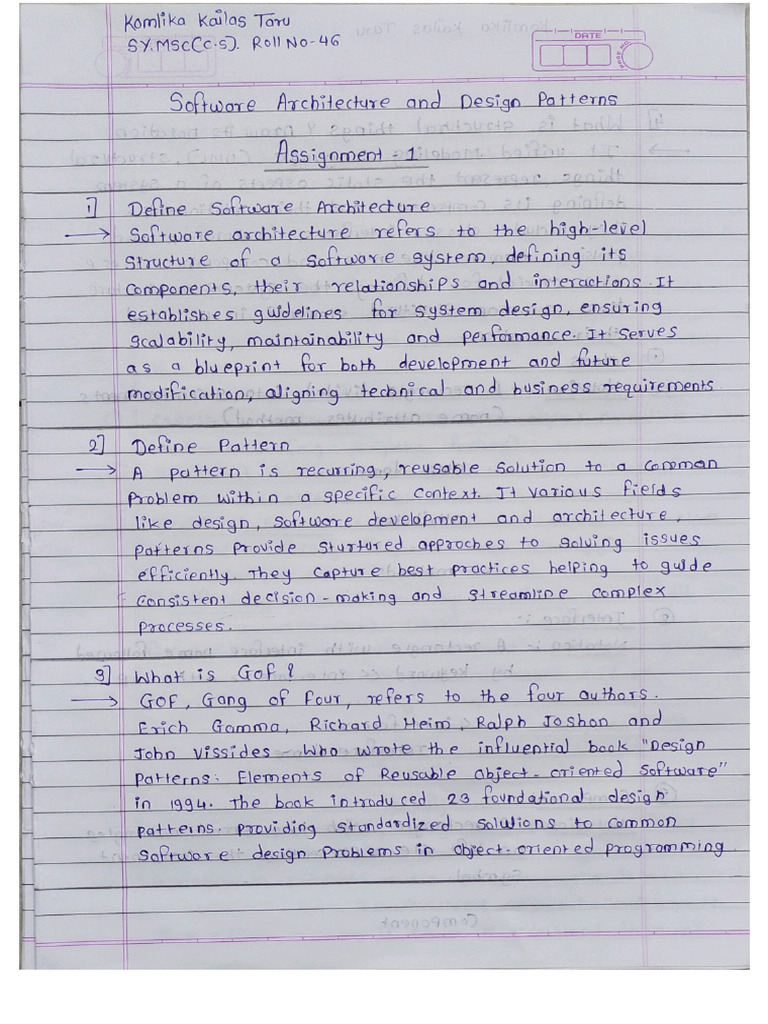 Komlika Kailas Taru
SY.MSC(C.S). Roll No-46
DATE
PAGE NO.
Software Architecture and Design Patterns
Assignment - 1
1] Define Software Architecture
→ Software architecture refers to the high-level
structure of a software system, defining its
components, their relationships and interactions. It
establishes guidelines for system design, ensuring
scalability, maintainability and performance. It serves
as a blueprint for both development and future
modification, aligning technical and business requirements
2] Define Pattern
→ A pattern is recurring, reusable solution to a common
problem within a specific context. It various fields
like design, software development and architecture,
patterns provide sturtured approches to solving issues
efficiently. They capture best practices helping to guide
consistent decision-making and streamline complex
processes.
3] What is GoF?
→ GOF, Gang of Four, refers to the four authors.
Erich Gamma, Richard Heim, Ralph Joshon and
John Vissides - Who wrote the influential book "Design
Patterns: Elements of Reusable object-oriented Software"
in 1994. The book introduced 23 foundational design
patterns. providing standardized solutions to common
software design problems in object-oriented programming